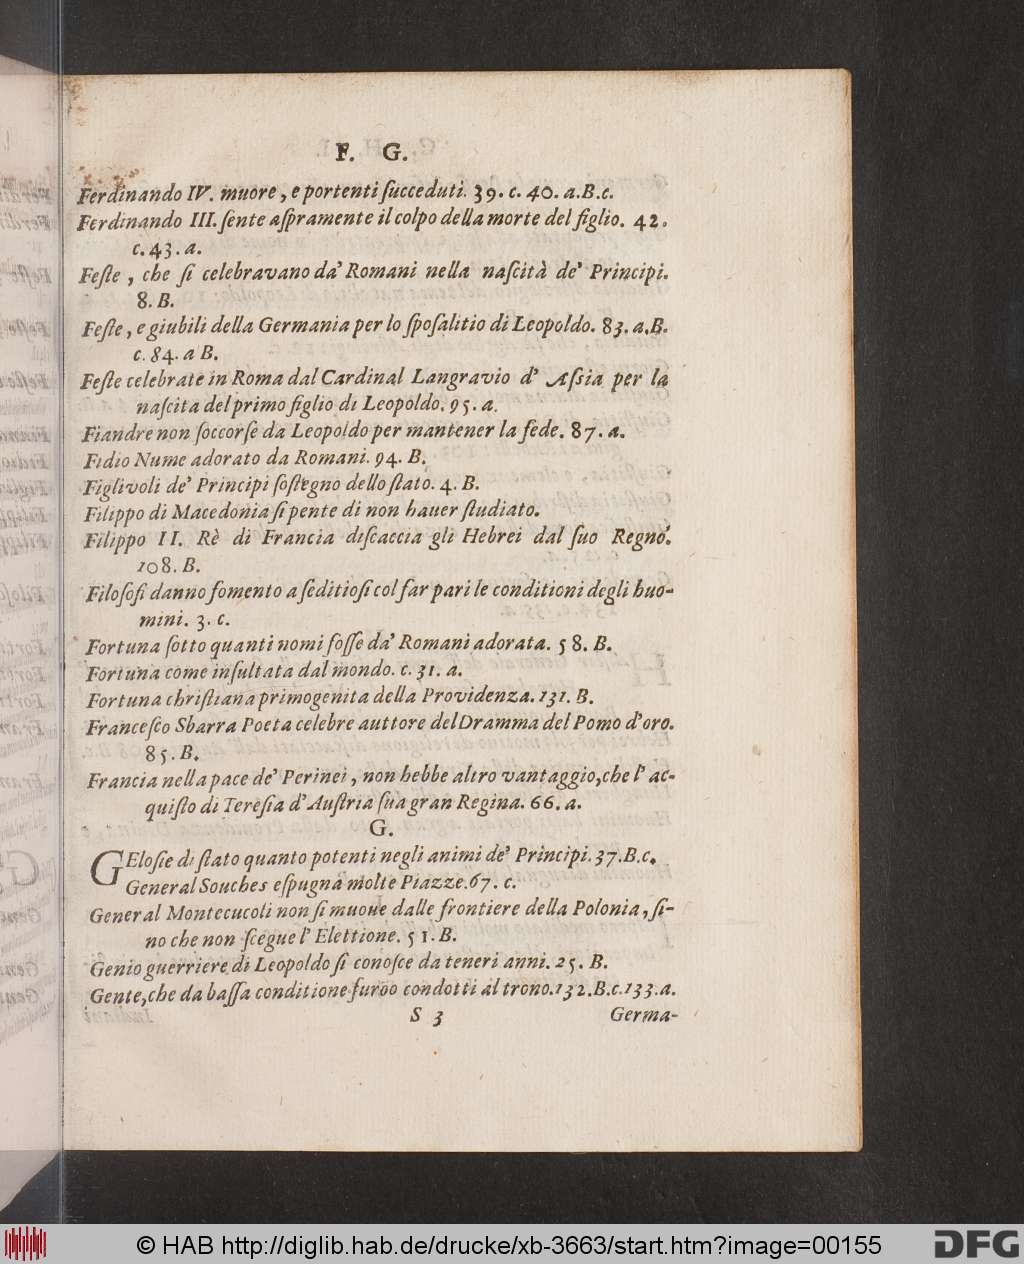 F. G.
Ferdinando IV. muore, e portenti ſucceduti. 39. c. 40. a.B.c.
Ferdinando III. ſente aſpramente il colpo della morte del figlio. 42.
c. 43. a.
Feſte, che ſi celebravano da' Romani nella naſcità de' Principi.
8. B.
Feſte, e giubili della Germania per lo ſpoſalitio di Leopoldo. 83. a.B.
c. 84. a B.
Feſte celebrate in Roma dal Cardinal Langravio d' Aſsia per la
naſcita del primo figlio di Leopoldo. 95. a.
Fiandre non ſoccorſe da Leopoldo per mantener la fede. 87. a.
Fidio Nume adorato da Romani. 94. B.
Figlivoli de' Principi ſoſtegno dello ſtato. 4. B.
Filippo di Macedonia ſi pente di non hauer ſtudiato.
Filippo II. Rè di Francia diſcaccia gli Hebrei dal ſuo Regno.
108. B.
Filoſofi danno fomento a ſeditioſi col far pari le conditioni degli huo-
mini. 3. c.
Fortuna ſotto quanti nomi foſſe da' Romani adorata. 58. B.
Fortuna come inſultata dal mondo. c. 31. a.
Fortuna chriſtiana primogenita della Providenza. 131. B.
Franceſco Sbarra Poeta celebre auttore del Dramma del Pomo d'oro.
85. B.
Francia nella pace de' Perinei, non hebbe altro vantaggio, che l' ac-
quiſto di Tereſia d' Auſtria ſua gran Regina. 66. a.
G.
GEloſie di ſtato quanto potenti negli animi de' Principi. 37.B.c.
General Souches eſpugna molte Piazze. 67. c.
General Montecucoli non ſi muove dalle frontiere della Polonia, ſi-
no che non ſcegue l' Elettione. 51. B.
Genio guerriere di Leopoldo ſi conoſce da teneri anni. 25. B.
Gente, che da baſſa conditione furoo condotti al trono. 132.B.c.133.a.
S 3 Germa-
© HAB http://diglib.hab.de/drucke/xb-3663/start.htm?image=00155
DFG